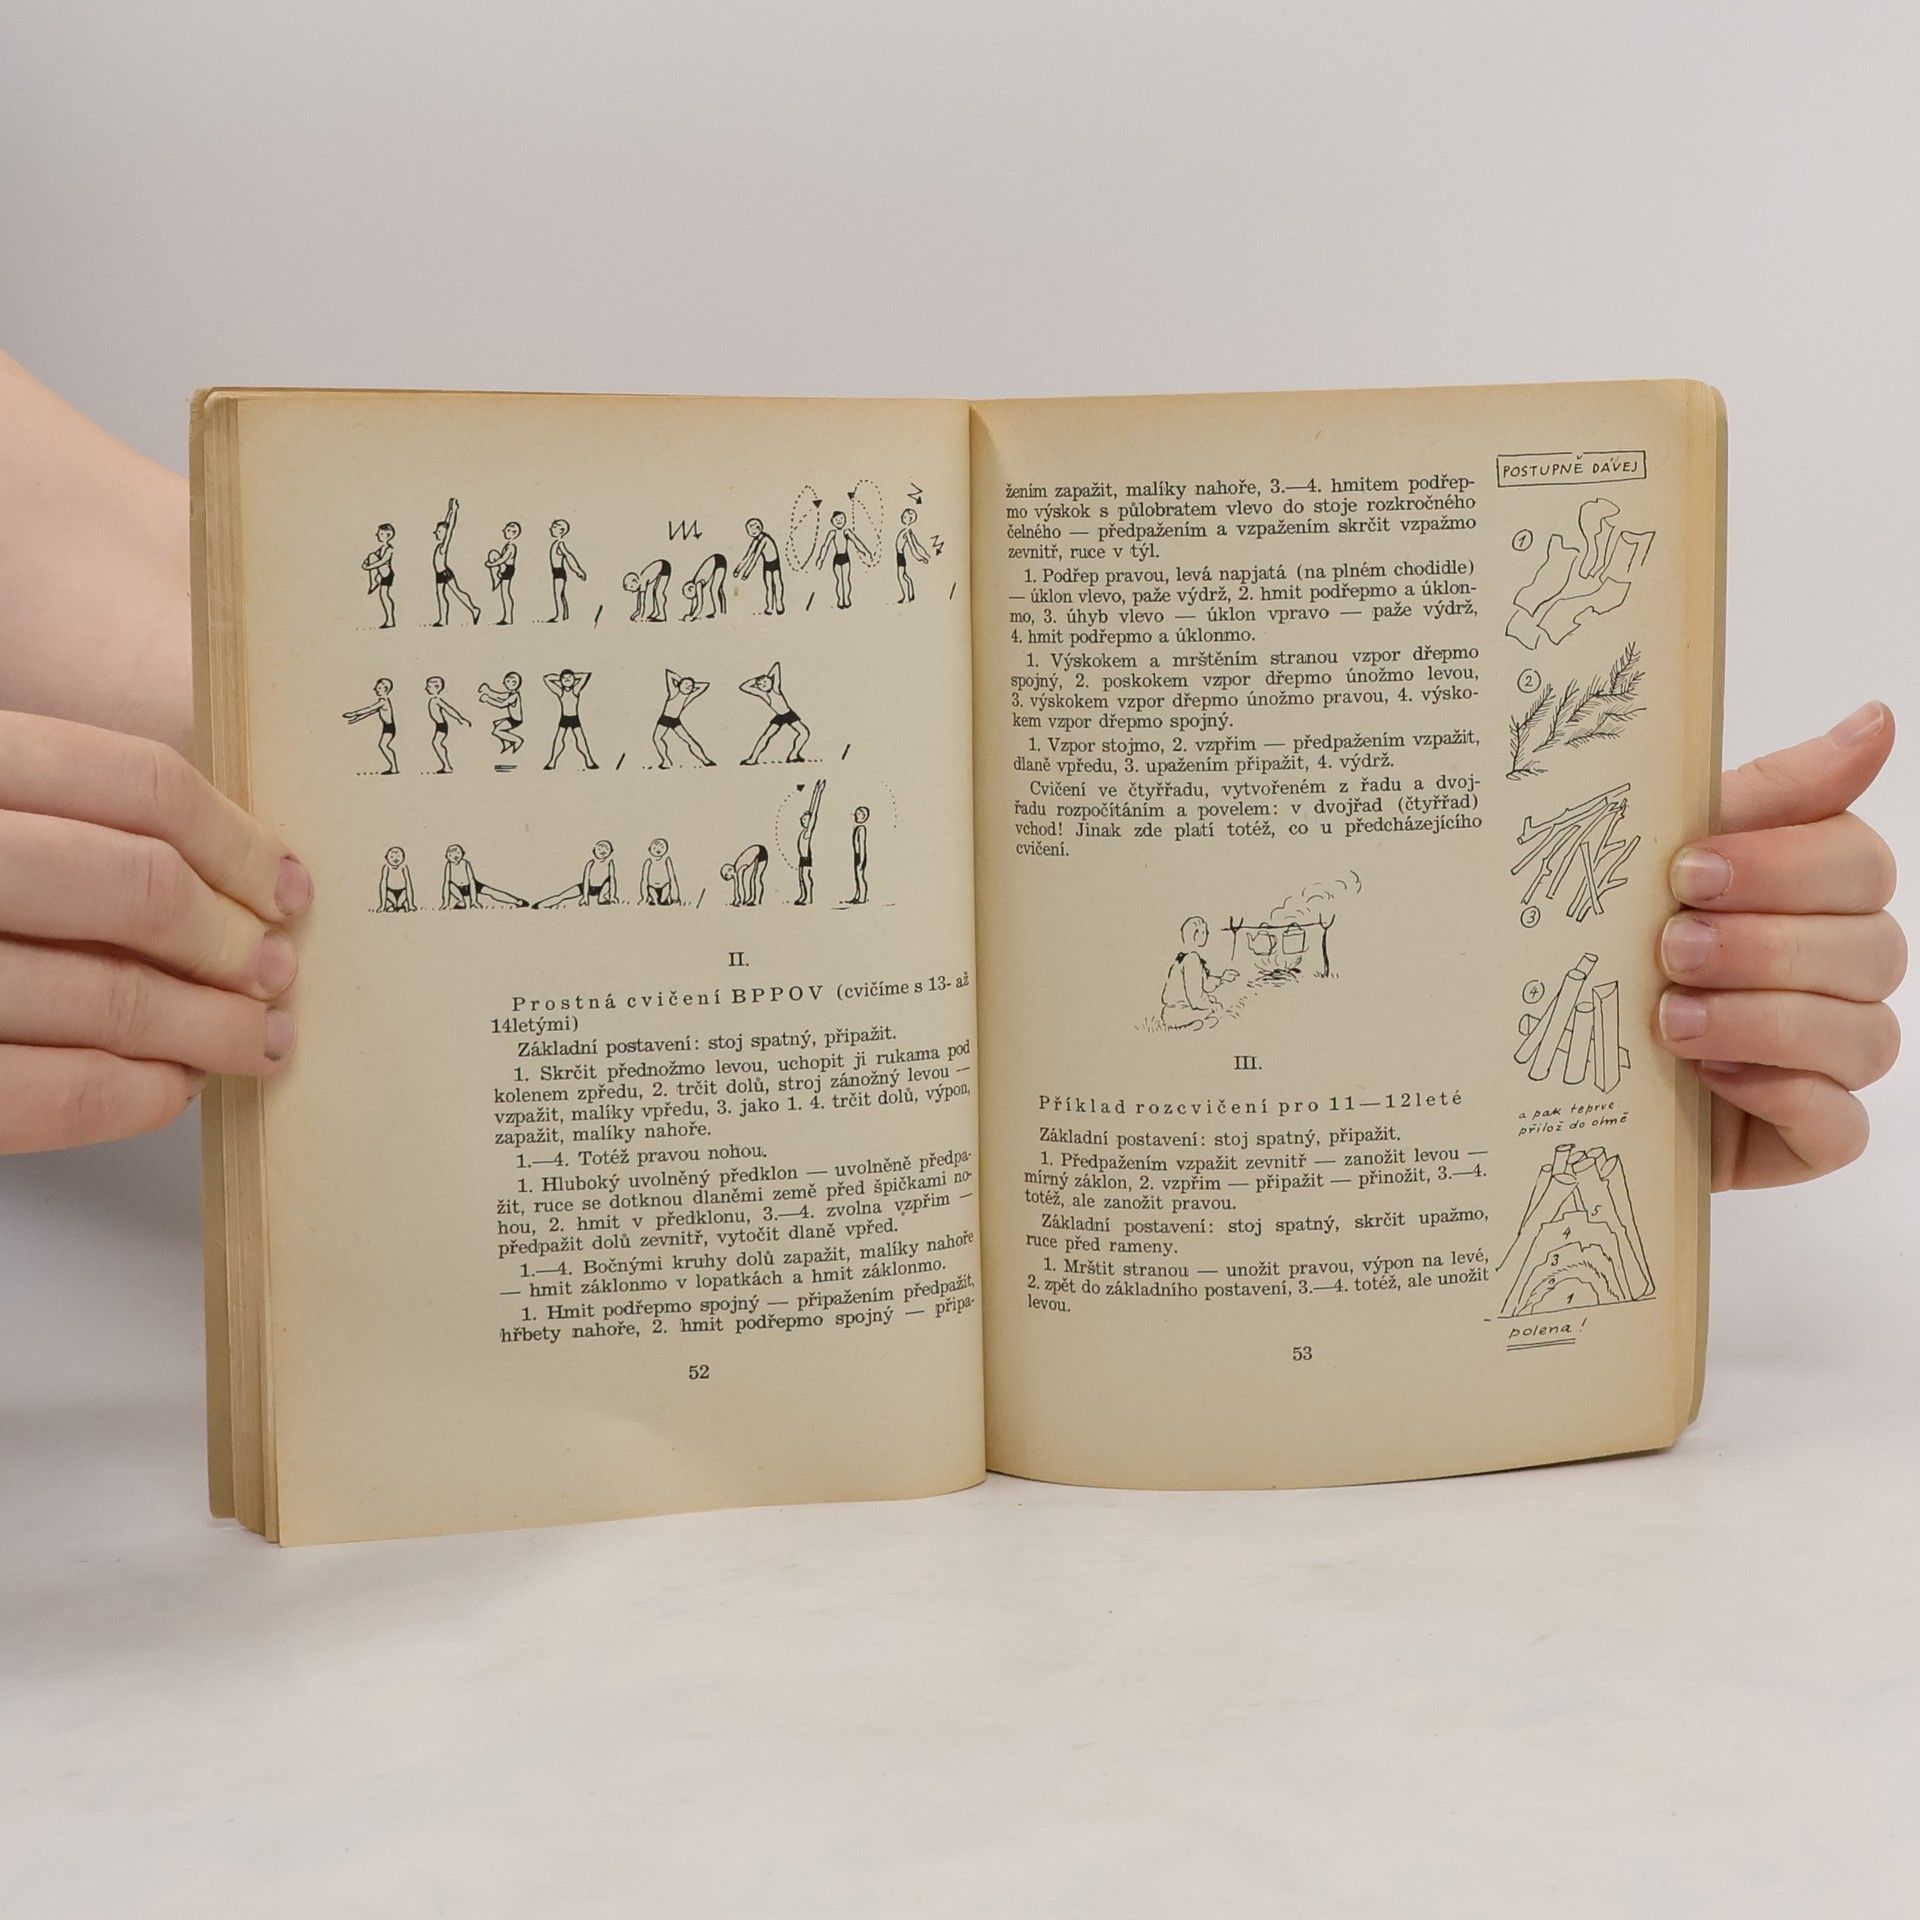 II.
Prostná cvičení BPPOV (cvičíme s 13- až
14letými)
Základní postavení: stoj spatný, připažit.
1. Skrčit přednožmo levou, uchopit ji rukama pod
kolenem zpředu, 2. trčit dolů, stroj zánožný levou —
vzpažit, malíky vpředu, 3. jako 1. 4. trčit dolů, výpon,
zapažit, malíky nahoře.
1.—4. Totéž pravou nohou.
1. Hluboký uvolněný předklon — uvolněně předpa-
žit, ruce se dotknou dlaněmi země před špičkami no-
hou, 2. hmit v předklonu, 3.—4. zvolna vzpřim —
předpažit dolů zevnitř, vytočit dlaně vpřed.
1.—4. Bočnými kruhy dolů zapažit, malíky nahoře
— hmit záklonmo v lopatkách a hmit záklonmo.
1. Hmit podřepmo spojný — připažením předpažit,
hřbety nahoře, 2. hmit podřepmo spojný — připa-
52
žením zapažit, malíky nahoře, 3.—4. hmitem podřep-
mo výskok s půlobratem vlevo do stoje rozkročného
čelného — předpažením a vzpažením skrčit vzpažmo
zevnitř, ruce v týl.
1. Podřep pravou, levá napjatá (na plném chodidle)
— úklon vlevo, paže výdrž, 2. hmit podřepmo a úklon-
mo, 3. úhyb vlevo — úklon vpravo — paže výdrž,
4. hmit podřepmo a úklonmo.
1. Výskokem a mrštěním stranou vzpor dřepmo
spojný, 2. poskokem vzpor dřepmo únožmo levou,
3. výskokem vzpor dřepmo únožmo pravou, 4. výsko-
kem vzpor dřepmo spojný.
1. Vzpor stojmo, 2. vzpřim — předpažením vzpažit,
dlaně vpředu, 3. upažením připažit, 4. výdrž.
Cvičení ve čtyřřadu, vytvořeném z řadu a dvoj-
řadu rozpočítáním a povelem: v dvojřad (čtyřřad)
vchod! Jinak zde platí totéž, co u předcházejícího
cvičení.
III.
Příklad rozcvičení pro 11—12leté
Základní postavení: stoj spatný, připažit.
1. Předpažením vzpažit zevnitř — zanožit levou —
mírný záklon, 2. vzpřim — připažit — přinožit, 3.—4.
totéž, ale zanožit pravou.
Základní postavení: stoj spatný, skrčit upažmo,
ruce před rameny.
1. Mrštit stranou — unožit pravou, výpon na levé,
2. zpět do základního postavení, 3.—4. totéž, ale unožit
levou.
53
POSTUPNĚ DÁVEJ
1
2
3
4
a pak teprve
přilož do ohně
5
4
3
2
1
polena!